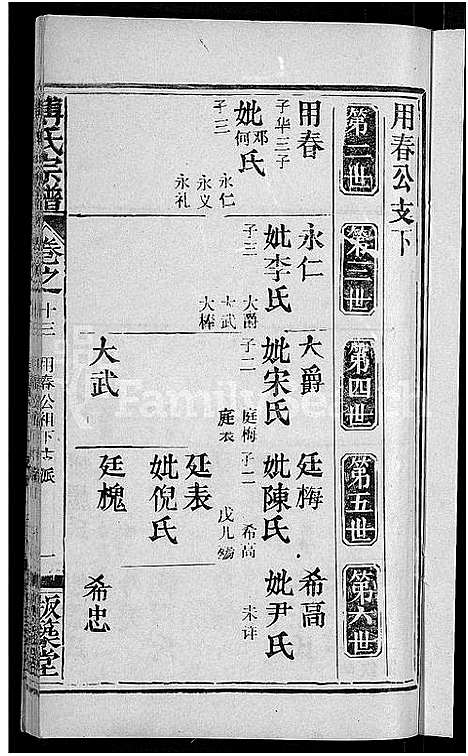 用春公支下
第二世
第三世
第四世
第五世
第六世
用春
子華三子
妣鄧何氏
子三
永仁
永义
永礼
永仁
妣李氏
子三
大爵
大武
大棒
大爵
妣宋氏
子二
庭梅
庭表
大武
廷梅
妣陳氏
子二
希高
戊儿殇
廷表
妣倪氏
廷槐
希高
妣尹氏
未详
希忠
傅氏宗譜
卷之十三
用春公祖下支派
一
版築堂